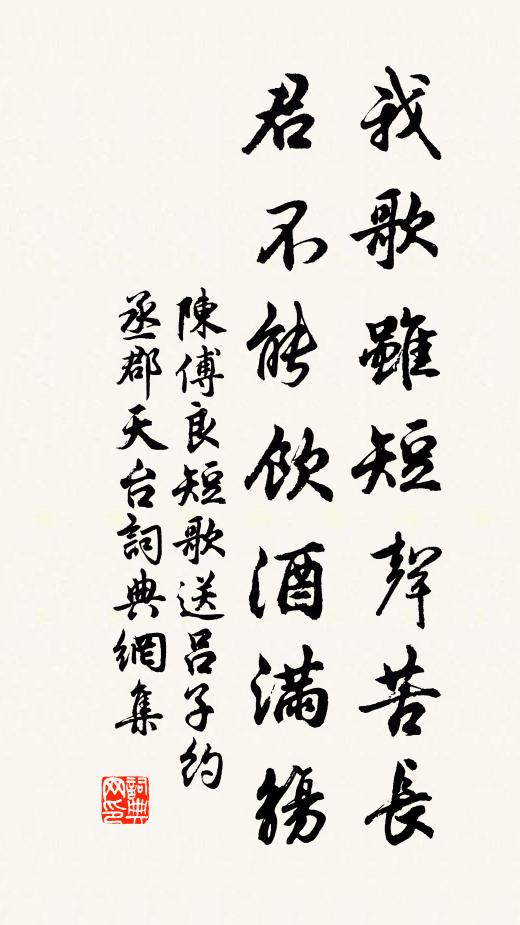 我歌雖短聲苦長
君不能飲酒滿觴
陳傅良短歌送呂子約
丞郡天台詞典網集
詞典網印